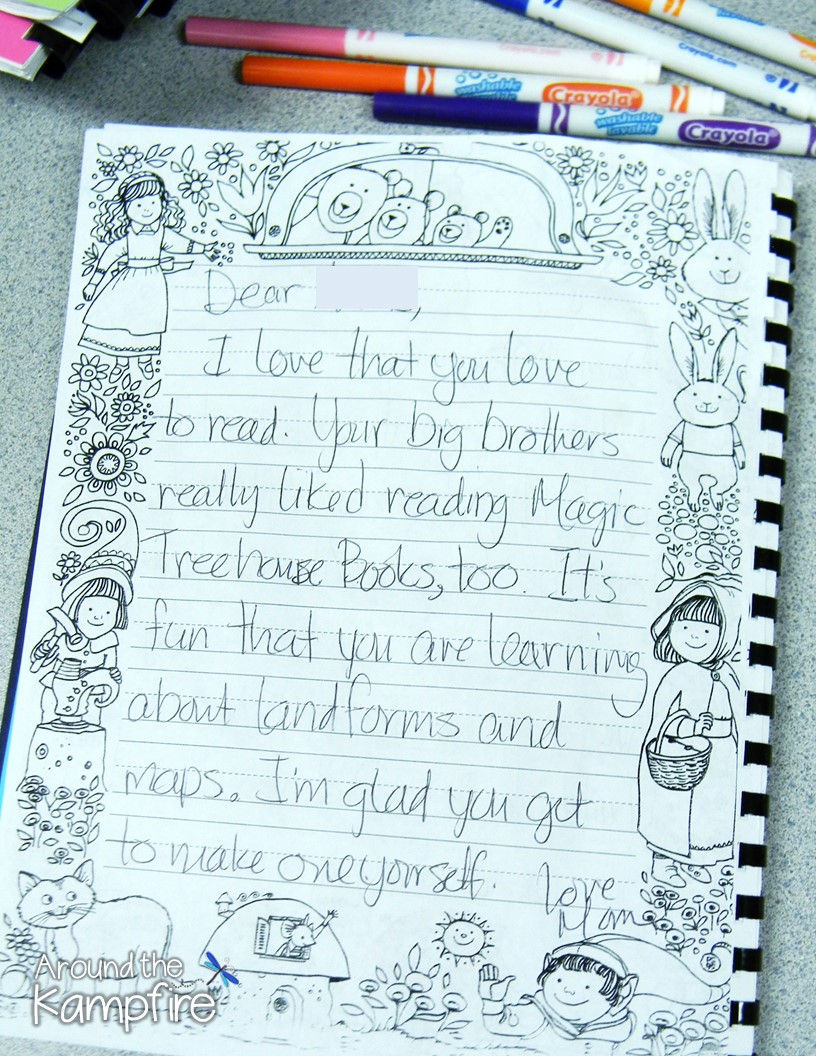 Crayola.com
Crayola.com
washable
Crayola
washable
lavable
Crayola
Dear ,
I love that you love
to read. Your big brothers
really liked reading Magic
Treehouse Books, too. It's
fun that you are learning
about landforms and
maps. I'm glad you get
to make one yourself. Love
Mom
Around the
Kampfire